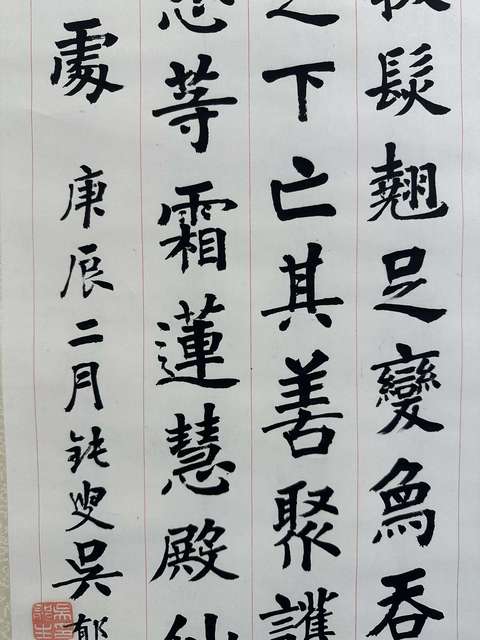 髮翹足變吞
之下亡其善聚
等霜蓮慧殿
處
庚辰二月鈍叟吳郁